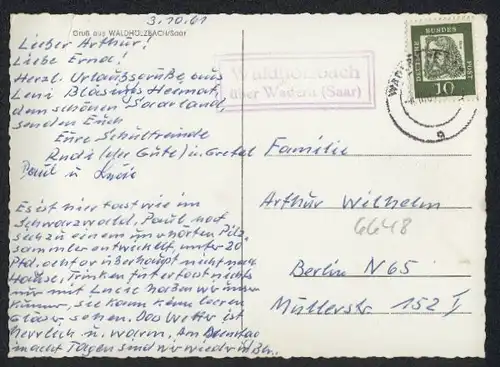 3.10.61
Gruß aus WALDHÖLZBACH/Saar
Lieber Arthur!
Liebe Erna!
Herzl. Urlaubsgrüße aus
Leni Bläsings Heimat,
dem schönen Saarland,
senden Euch
Eure Schulfreunde
Rudi (der Gute) u. Gretel
Paul u
Es ist hier fast wie im
Schwarzwald. Paul hat
sich zu einem unerhörten Pilz-
sammler entwickelt, unter 20
Pfd. geht er überhaupt nicht nach
Hause. Trinken tut er fast nichts
nur mit
kann keine leeren
Gläser sehen. Das Wetter ist
herrlich u. warm. Am Dienstag
Tagen sind wir wieder
Waldhölzbach
über Wadern (Saar)
DEUTSCHE BUNDESPOST
10
a
Familie
Arthur Wilhelm
6648
Berlin N 65
Müllerstr. 152 I